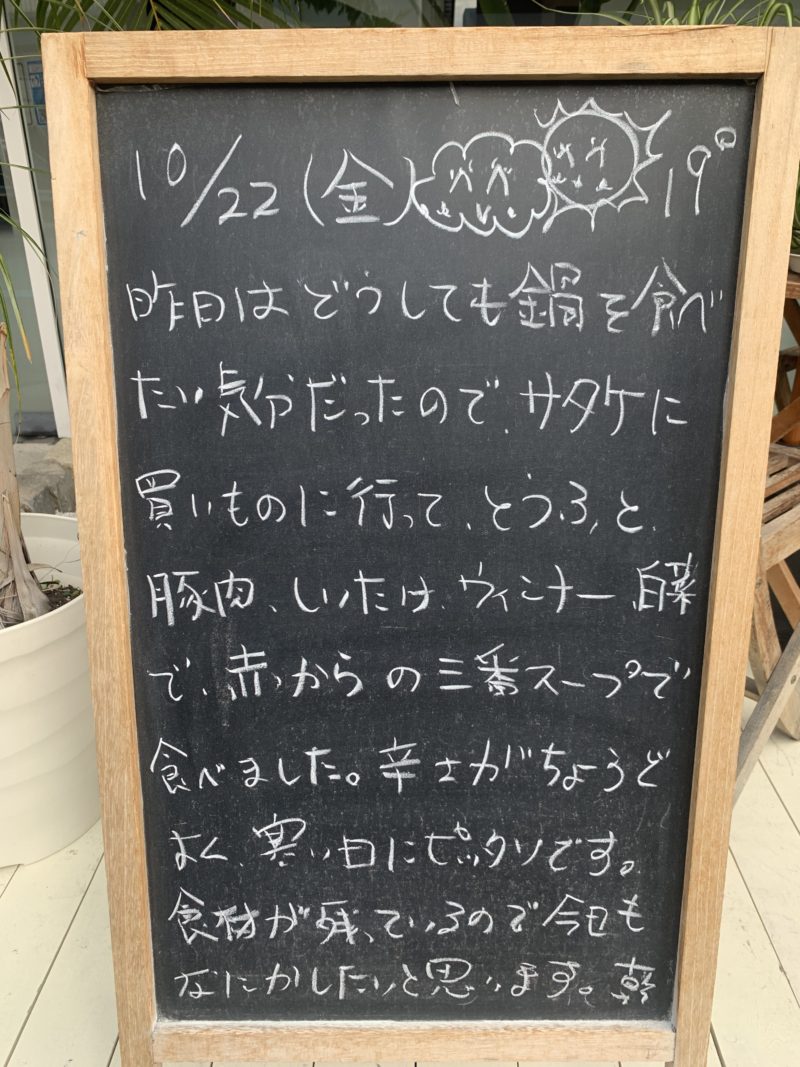 10/22(金) 19°
昨日はどうしても鍋を食べ
たい気分だったので、サタケに
買いものに行って、とうふ、と、
豚肉、しいたけ、ウィンナー、白菜
で、赤からの三番スープで
食べました。辛さがちょうど
よく、寒い日にピッタリです。
食材が残っているので今日も
なにかしたいと思います。